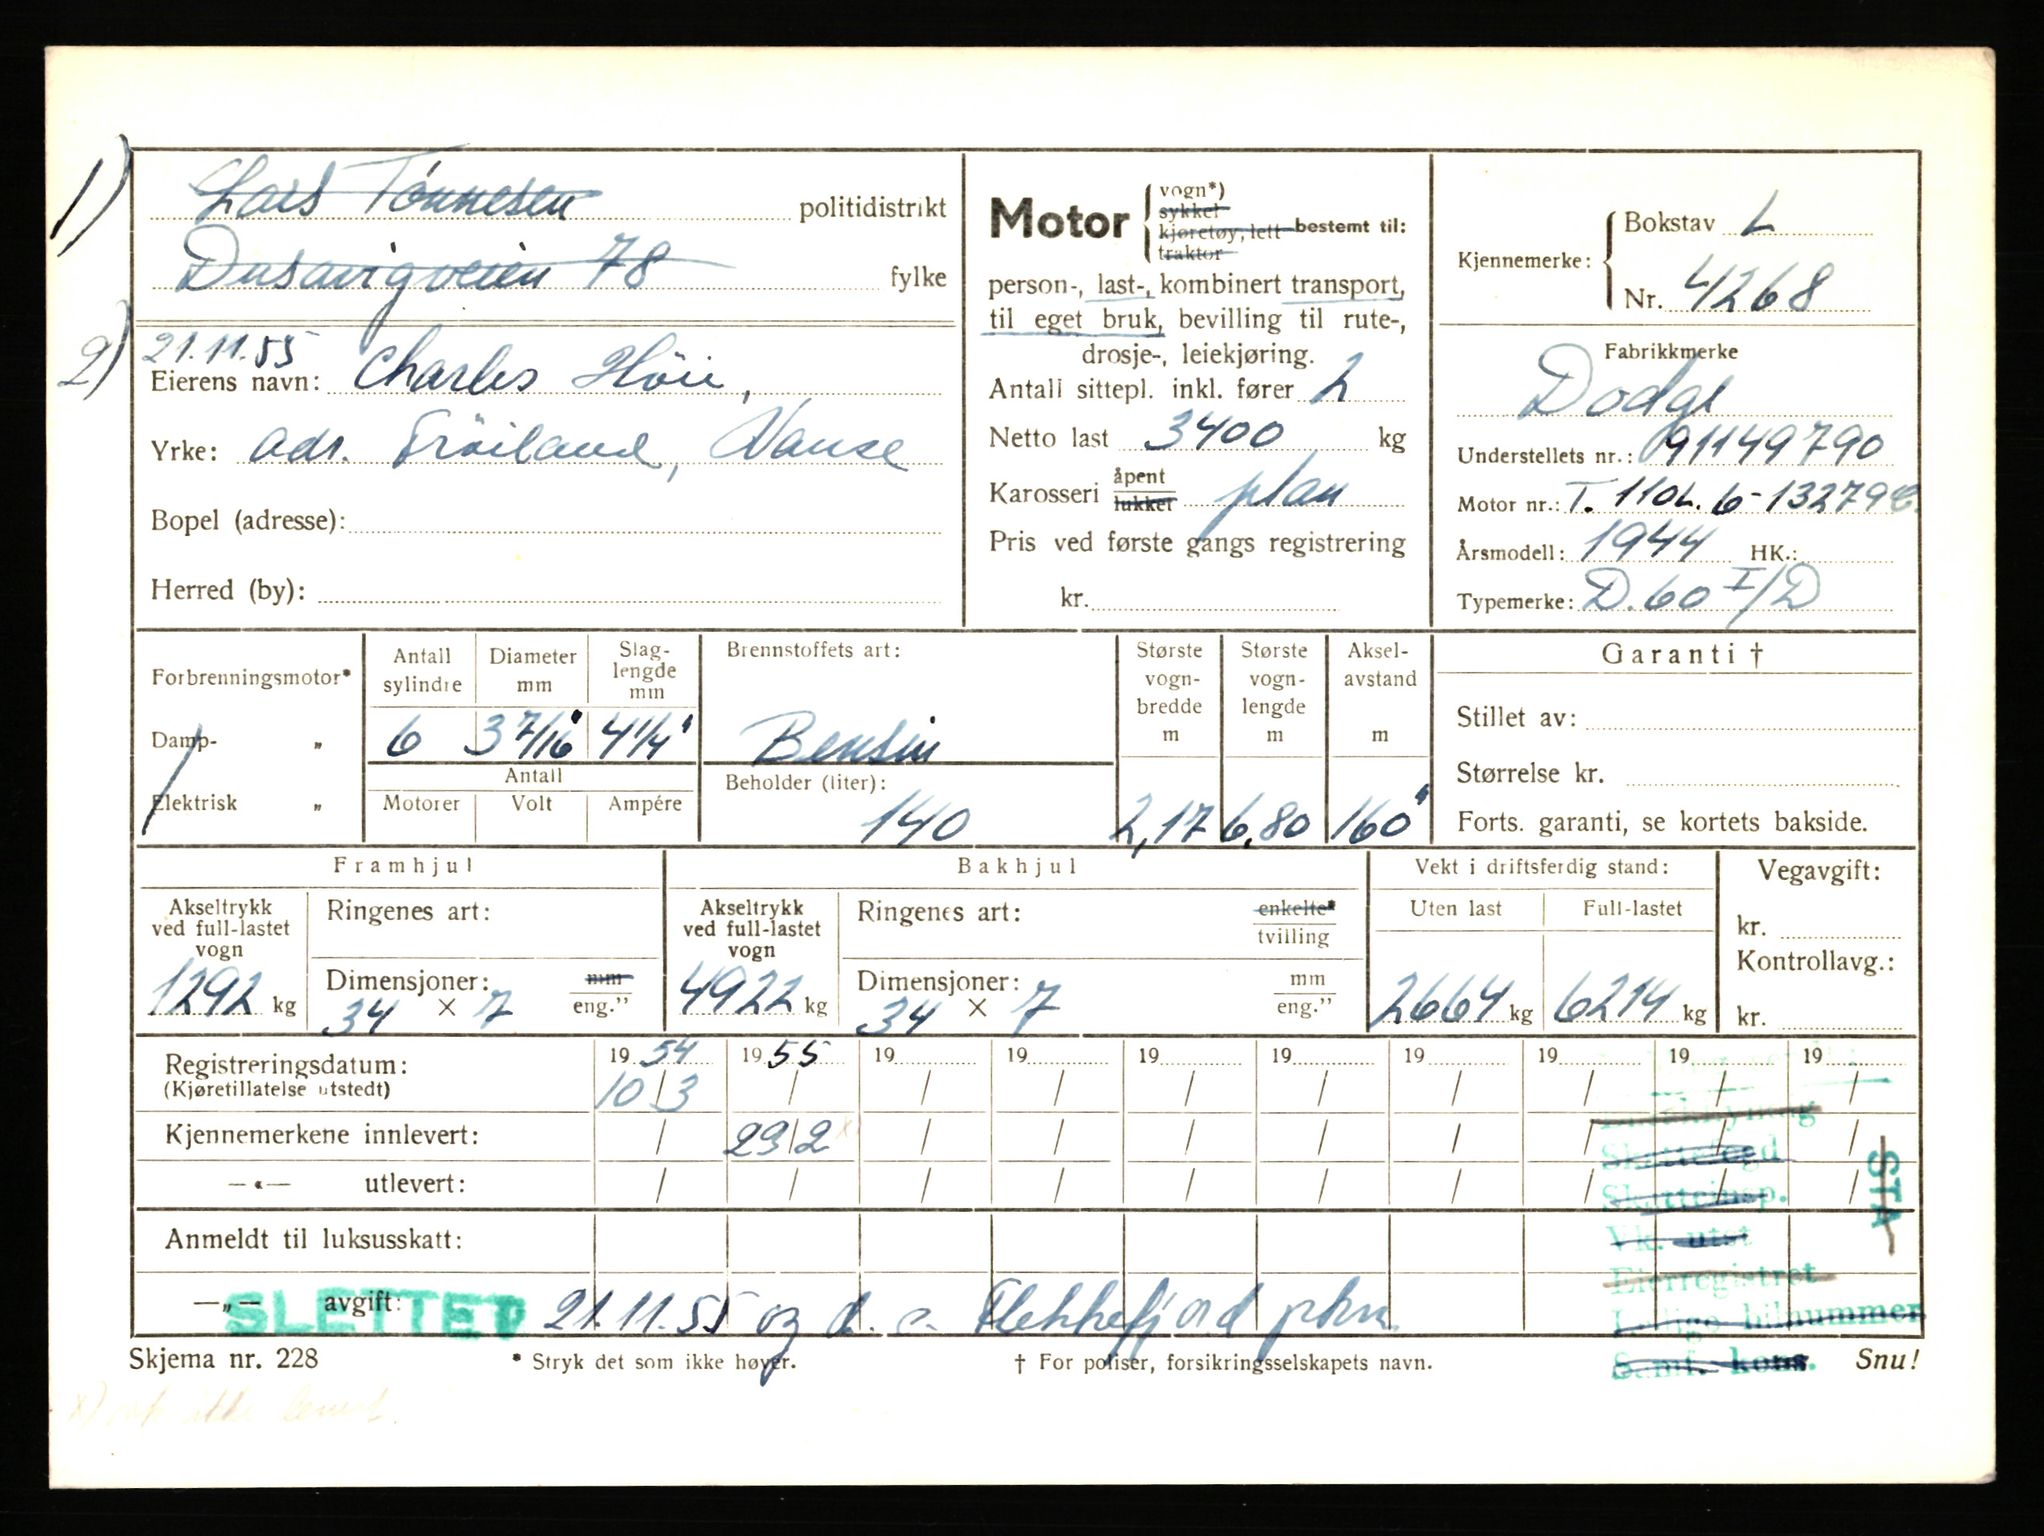 1) Lars Tønnesen politidistrikt
Dusavigveien 78 fylke
2) 21.11.55
Eierens navn: Charles Höie,
Yrke: adr. Tröiland, Vanse
Bopel (adresse):
Herred (by):
Motor
vogn*)
sykkel
kjøretøy, lett
traktor
bestemt til:
person-, last-, kombinert transport,
til eget bruk, bevilling til rute-,
drosje-, leiekjøring.
Antall sittepl. inkl. fører 2
Netto last 3400 kg
Karosseri åpent
lukket plan
Pris ved første gangs registrering
kr.
Kjennemerke:
Bokstav L
Nr. 4268
Fabrikkmerke
Dodge
Understellets nr.: 91149790
Motor nr.: T. 110L.6-13279C.
Årsmodell: 1944 HK.:
Typemerke: D.60 I/D
Forbrenningsmotor*
Damp- „
Elektrisk „
Antall sylindre
Diameter mm
Slag-lengde mm
6 3 7/16" 4 1/4"
Antall
Motorer Volt Ampére
Brennstoffets art:
Bensin
Beholder (liter):
140
Største vogn-bredde m
2,17
Største vogn-lengde m
6,80
Aksel-avstand m
160"
Garanti †
Stillet av:
Størrelse kr.
Forts. garanti, se kortets bakside.
Framhjul
Akseltrykk ved full-lastet vogn
1292 kg
Ringenes art:
Dimensjoner: mm
34 × 7 eng.”
Bakhjul
Akseltrykk ved full-lastet vogn
4922 kg
Ringenes art: enkelte*
tvilling
Dimensjoner: mm
34 × 7 eng.”
Vekt i driftsferdig stand:
Uten last Full-lastet
2664 kg 6214 kg
Vegavgift:
kr.
Kontrollavg.:
kr.
Registreringsdatum: 19 54 19 55 19 19 19 19 19 19 19 19
(Kjøretillatelse utstedt) 10/3 / / / / / / / / /
Kjennemerkene innlevert: / 23/2 x) / / / / / / / /
—«— utlevert: / / / / / / / / / /
Skattefogd
Skatteinsp.
Vk. utst
Eierregistret
Ledige bilnummer
Samf. kons.
STA
Anmeldt til luksusskatt:
—„— avgift:
SLETTET 21.11.55 og d. o. Flekkefjord pkm.
Skjema nr. 228
* Stryk det som ikke høver.
† For poliser, forsikringsselskapets navn.
Snu!
x) ikke levert